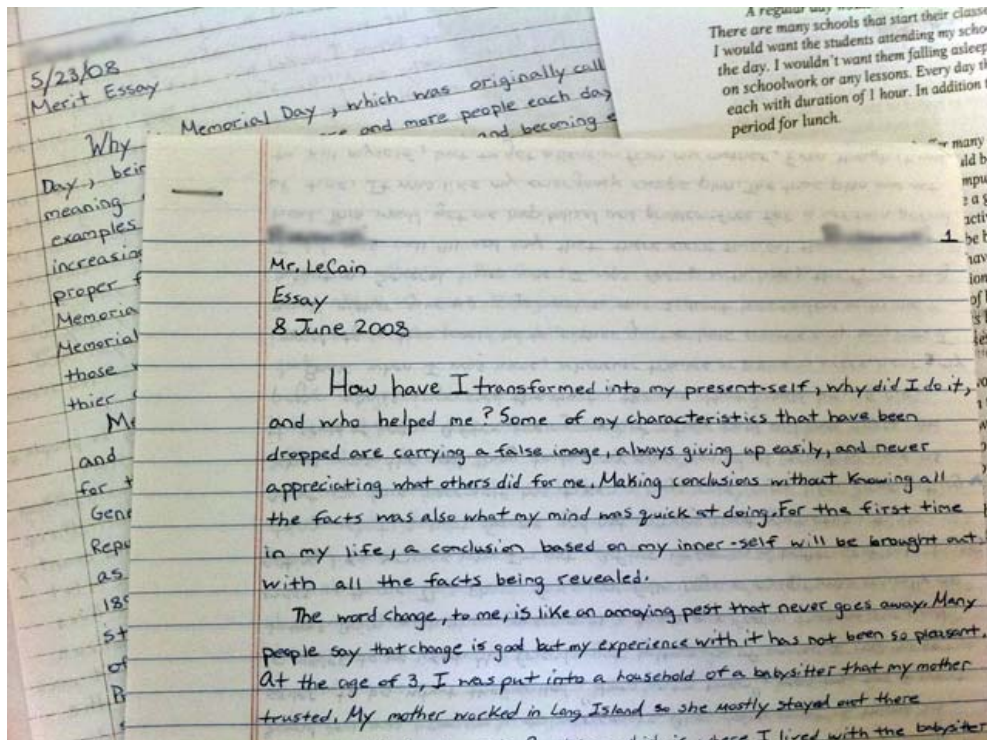 5/23/08
Merit Essay
Why Memorial Day, which was originally call
and more people each day
and becoming
Day, bei
meaning
examples
increasin
proper f
Memoria
Memorial
those
thier
Me
and
for t
Gene
Repu
as
189
st
of
B
A regular day
There are many schools that start their classe
I would want the students attending my scho
the day. I wouldn't want them falling asleep
on schoolwork or any lessons. Every day th
each with duration of 1 hour. In addition t
period for lunch.
many
1
Mr. LeCain
Essay
8 June 2008
How have I transformed into my present-self, why did I do it,
and who helped me? Some of my characteristics that have been
dropped are carrying a false image, always giving up easily, and never
appreciating what others did for me. Making conclusions without knowing all
the facts was also what my mind was quick at doing. For the first time
in my life, a conclusion based on my inner-self will be brought out,
with all the facts being revealed.
The word change, to me, is like an annoying pest that never goes away. Many
people say that change is good but my experience with it has not been so pleasant.
At the age of 3, I was put into a household of a babysitter that my mother
trusted. My mother worked in Long Island so she mostly stayed out there
where I lived with the babysitter